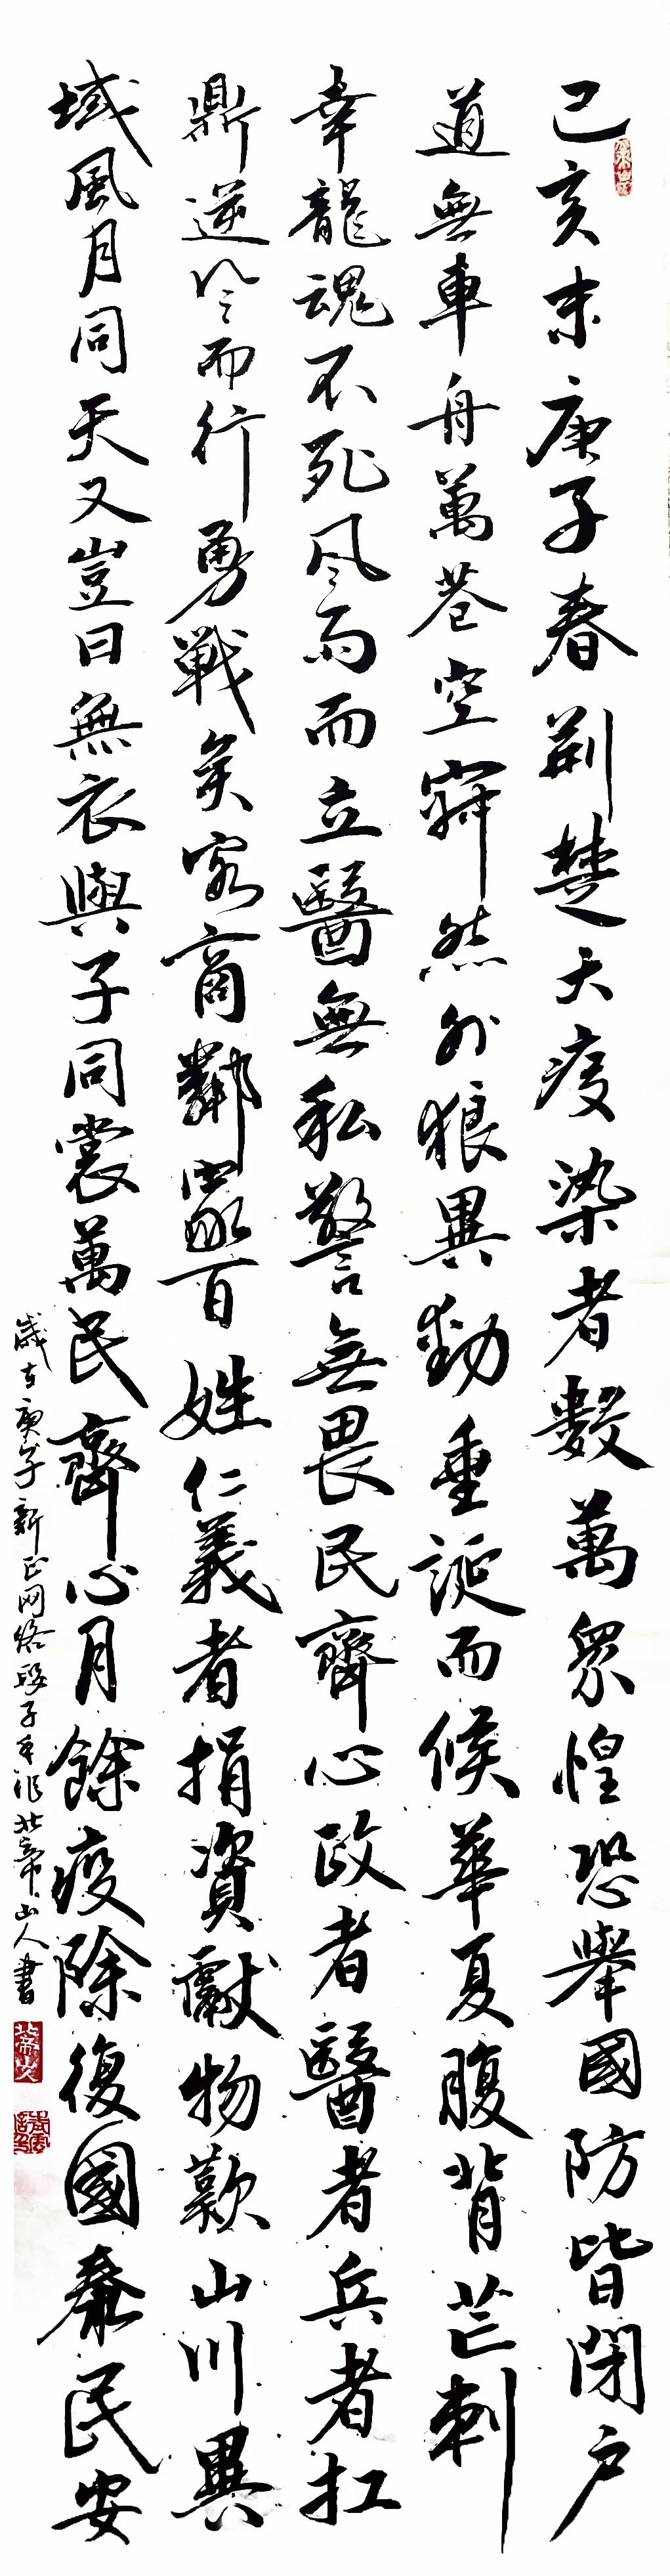 己亥末庚子春荆楚大疫染者數萬眾惶恐舉國防皆閉户
道無車舟萬巷空寂然外狼異動垂誕而候華夏腹背芒刺
幸龍魂不死风雨而立醫無私警無畏民齊心政者醫者兵者扛
鼎逆冷而行勇戰矣家商鄰眾百姓仁義者捐資獻物歎山川異
域風月同天又豈曰無衣與子同裳萬民齊心月餘疫除復國泰民安
歲在庚子新正网络段子 山人書